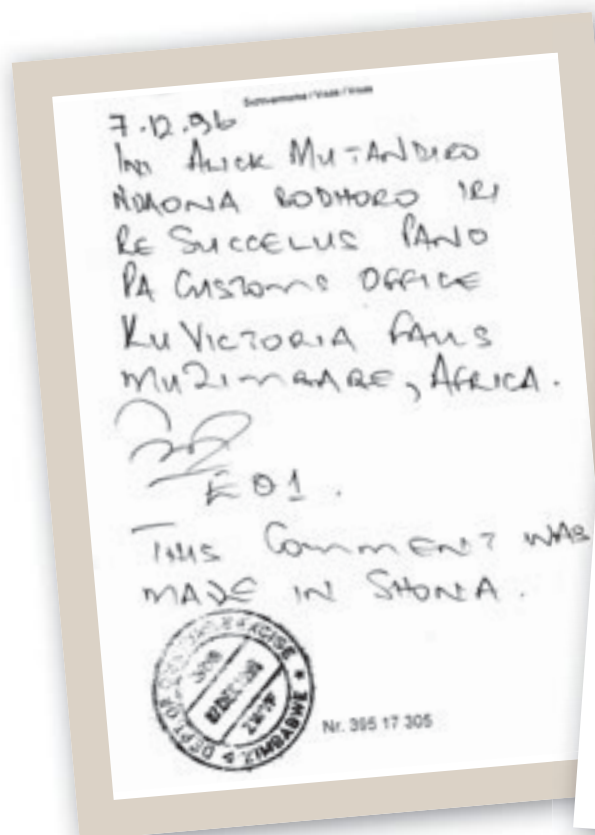 Sichtvermerke / Visas / Visas
7.12.96
Ini ALICK MUTANDIRO
NDAONA BODHORO IRI
RE SUCCELLUS PANO
PA CUSTOMS OFFICE
KU VICTORIA FALLS
MUZIMBABWE, AFRICA.
EO1.
THIS COMMENT WAS
MADE IN SHONA.
DEPT. OF CUSTOMS & EXCISE
ZIMBABWE
Nr. 395 17 305